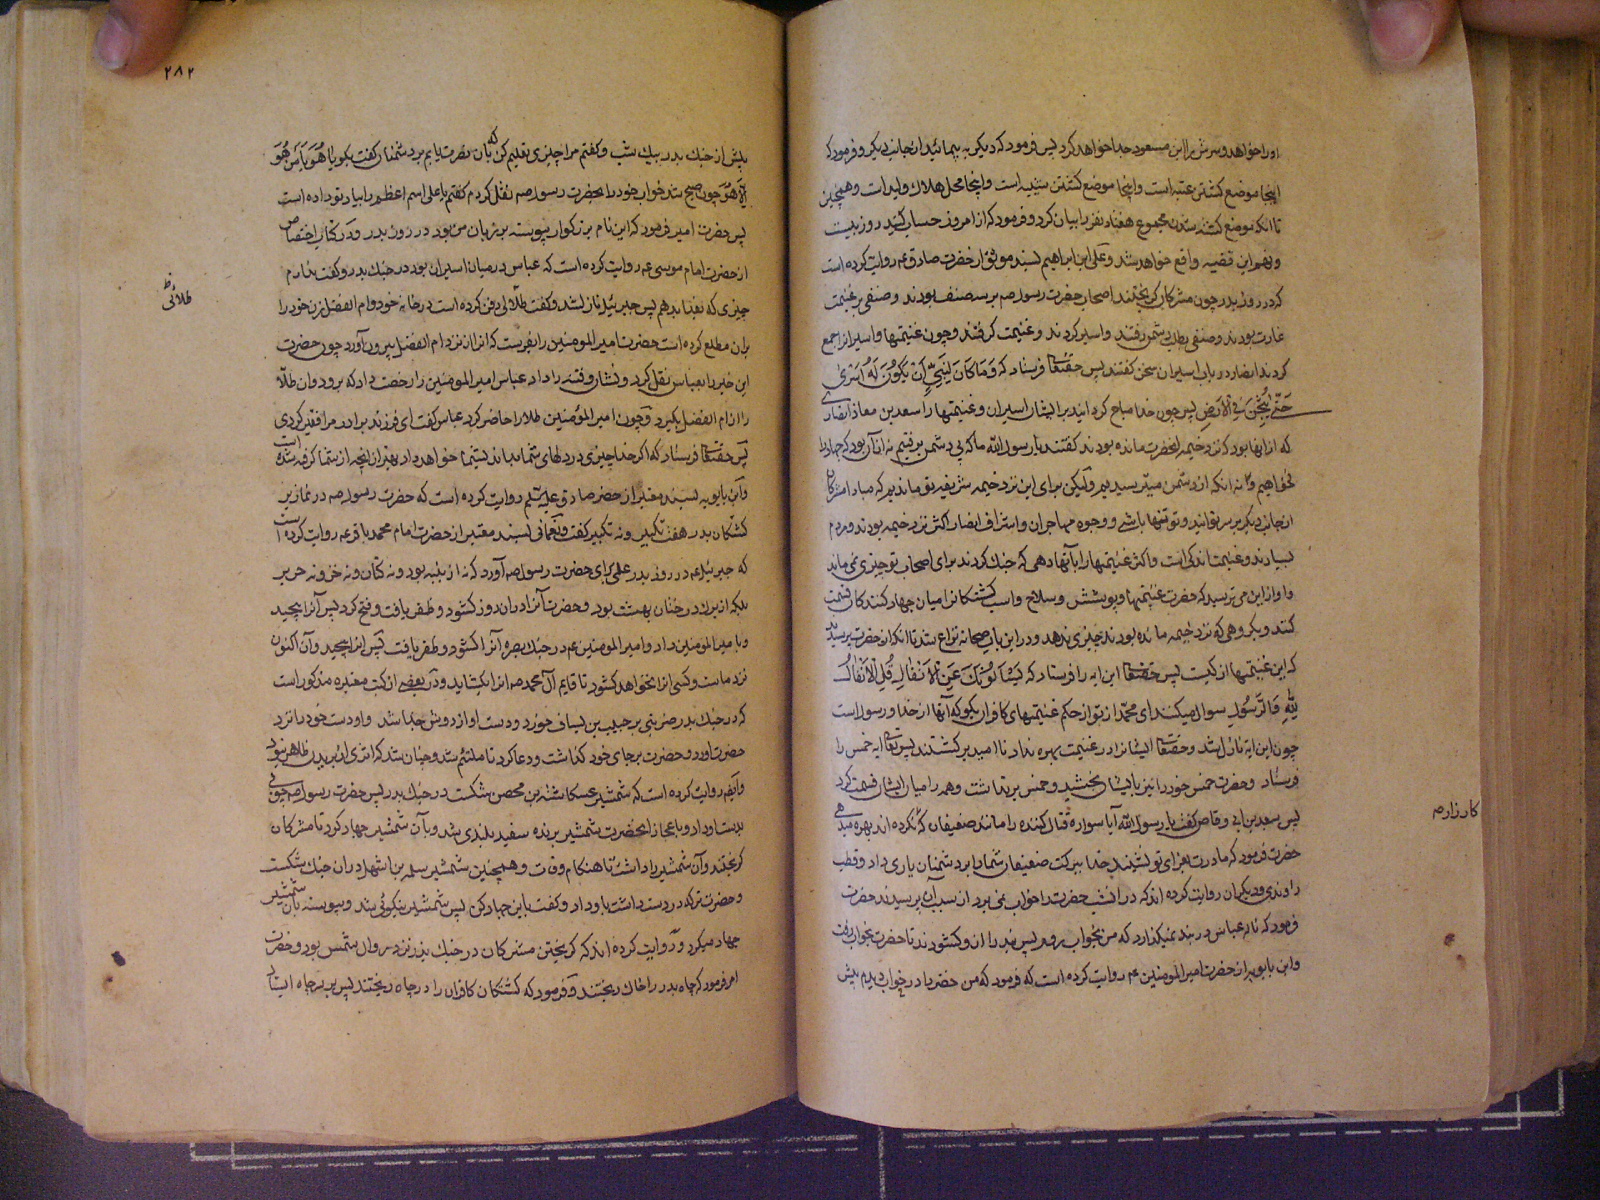 اورا خواهد و سرش را ابن مسعود جدا خواهد کرد پس فرمود که دیگر به پیمائید از جانب دیگر و فرمود که
اینجا موضع کشتن عتبه است و اینجا موضع کشتن شیبه است و اینجا محل هلاک ولید است و همچنین
تا آنکه موضع کشته شدن مجموع هفتاد نفر را بیان کرد و فرمود که از امروز حساب کنید روز بیست
و نهم این قضیه واقع خواهد شد و علی ابن ابراهیم بسند موثق از حضرت صادق عم روایت کرده است
که در روز بدر چون مشرکان گریختند اصحاب حضرت رسول صم بر سه صنف بودند و صنفی بر غنیمت
غارت بودند و صنفی بطلب دشمن رفتند و اسیر کردند و غنیمت گرفتند و چون غنیمتها و اسیرانرا جمع
کردند انصار در باب اسیران سخن گفتند پس حقتعا فرستاد که وَمَا كَانَ لِنَبِيٍّ اَنْ يَكُونَ لَهُ اَسْرٰى
حَتّٰى يُثْخِنَ فِى الْاَرْضِ پس چون خدا مباح گردانید بر ایشان اسیران و غنیمتها را سعد بن معاذ انصاری
که از آنها بود که نزد خیمه آنحضرت مانده بودند گفتند یا رسول الله ما که پی دشمن نرفتیم نه از آن بود که جهاد را
نخواهیم و نه آنکه از دشمن میترسیدیم ولیکن برای این نزد خیمه شریفه تو ماندیم که مبادا مشرکان
از جانب دیگر بر سر تو آیند و تو تنها باشی و وجوه مهاجران و اشراف انصار اکثر نزد خیمه بودند و مردم
بسیارند و غنیمت اندکی است و اکثر غنیمتها را بآنها دهی که جنگ کردند برای اصحاب تو چیزی نمی ماند
و او از این می ترسید که حضرت غنیمتها و پوشش و سلاح و اسب کشتگانرا میان جهاد کنندگان قسمت
کند و بگروهی که نزد خیمه مانده بودند چیزی ندهد و در این باب صحابه نزاع شد تا آنکه از حضرت پرسیدند
که این غنیمتها از کیست پس حقتعا این ایه را فرستاد که يَسْئَلُونَكَ عَنِ الْاَنْفَالِ قُلِ الْاَنْفَالُ
لِلّٰهِ وَالرَّسُولِ سوال میکنند ای محمد از تو از حکم غنیمتهای کافران بگو که آنها از خدا و رسول است
چون این ایه نازل شد و حقتعا ایشانرا در غنیمت بهره نداد نا امید برگشتند پس حقتعا ایه خمس را
فرستاد و حضرت خمس خود را نیز بایشان بخشید و خمس برنداشت و همه را میان ایشان قسمت کرد
پس سعد بن ابی وقاص گفت یا رسول الله آیا سواره قتال کننده را مانند ضعیفان که نکرده اند بهره میدهی
کارزار صم
حضرت فرمود که مادرت بعزای تو نشیند خدا ببرکت ضعیفان شما را بر دشمنان یاری داد و قطب
راوندی و دیگران روایت کرده اند که در آن شب حضرت را خواب نمی برد از سبب آن پرسیدند حضرت
فرمود که ناله عباس در بند نمیگذارد که من بخواب روم پس بند را از او گشودند تا حضرت بخواب رفت
و ابن بابویه از حضرت امیر المومنین عم روایت کرده است که فرمود که من خضر را در خواب دیدم پیش
۲۸۲
پیش از جنگ بدر بیک شب و گفتم مرا چیزی تعلیم کن که بآن نصرت یابم بر دشمنان گفت بگو یا هُوَ يَا مَنْ هُوَ
اِلَّا هُوَ چون صبح شد خواب خود را بحضرت رسول صم نقل کردم گفتم یا علی اسم اعظم را بیاد تو داده است
پس حضرت امیر فرمود که این نام بزرگوار پیوسته بر زبان من بود در روز بدر و در کتاب اختصاص
از حضرت امام موسی عم روایت کرده است که عباس در میان اسیران بود در جنگ بدر و گفت ندارم
چیزی که بفدا بدهم پس جبرئیل نازل شد و گفت طلائی دفن کرده است در خانه خود و ام الفضل زن خود را
طلائی
بران مطلع کرده است حضرت امیر المومنین را بفرست که آنرا از نزد ام الفضل بیرون آورد چون حضرت
این خبر را بعباس نقل کرد و نشان دفینه را داد عباس امیر المومنین را رخصت داد که برود و آن طلا
را از ام الفضل بگیرد و چون امیر المومنین طلا را حاضر کرد عباس گفت ای فرزند برادر مرا فقیر کردی
پس حقتعا فرستاد که اگر خدا چیزی در دلهای شما بداند بشما خواهد داد بهتر از آنچه از شما گرفته شده است
و ابن بابویه بسند معتبر از حضرت صادق علیه السلم روایت کرده است که حضرت رسول صم در نماز بر
کشتگان بدر هفت تکبیر و نه تکبیر گفت و نعمانی بسند معتبر از حضرت امام محمد باقر عم روایت کرده است
که جبرئیل عم در روز بدر علمی برای حضرت رسول صم آورد که نه از پنبه بود و نه کتان و نه خز و نه حریر
بلکه از برگ درختان بهشت بود و حضرت آنرا در آن روز گشود و ظفر یافت و فتح کرد پس آنرا پیچید
و با میر المومنین داد و امیر المومنین عم در جنگ بصره آنرا گشود و ظفر یافت پس آنرا پیچید و آن اکنون
نزد ماست و کسی آنرا نخواهد گشود تا قایم آل محمد صم آنرا بگشاید و در بعضی از کتب معتبره مذکور است
که در جنگ بدر ضربتی بر حبیب بن یساف خورد و دست او از دوش جدا شد و او دست خود را نزد
حضرت آورد و حضرت بر جای خود گذاشت و دعا کرد تا ملتئم شد و چنان شد که اثری از بریدن ظاهر نبود
و ایضه روایت کرده است که شمشیر عکاشه بن محصن شکست در جنگ بدر پس حضرت رسول صم چوبی
بدست او داد و باعجاز آنحضرت شمشیر برنده سفید بلندی شد و بآن شمشیر جهاد کرد تا مشرکان
گریختند و آن شمشیر را داشت تا هنگام وفات و همچنین شمشیر سلمه بن اشهل در آن جنگ شکست
و حضرت ترکه در دست داشت باو داد و گفت باین جهاد کن پس شمشیر نیکوئی شد و پیوسته بآن شمشیر
جهاد میکرد و روایت کرده اند که گریختن مشرکان در جنگ بدر نزد زوال شمس بود و حضرت
امر فرمود که چاه بدر را خاک ریختند و فرمود که کشتگان کافران را در چاه ریختند پس بر سر چاه ایستاد